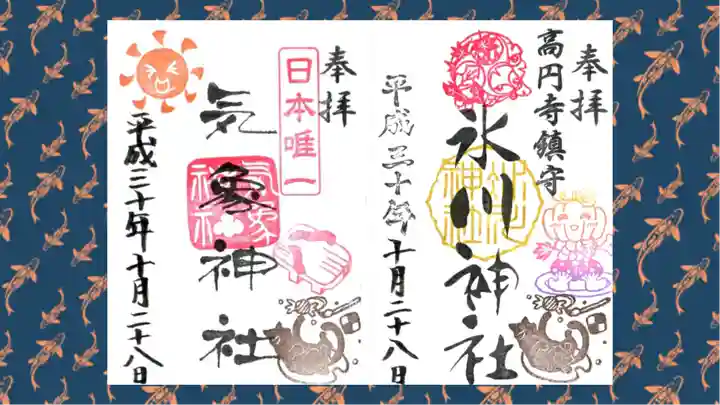 奉拝
高円寺鎮守
氷川神社
平成三十年十月二十八日
奉拝
日本唯一
気象神社
気象神社
平成三十年十月二十八日